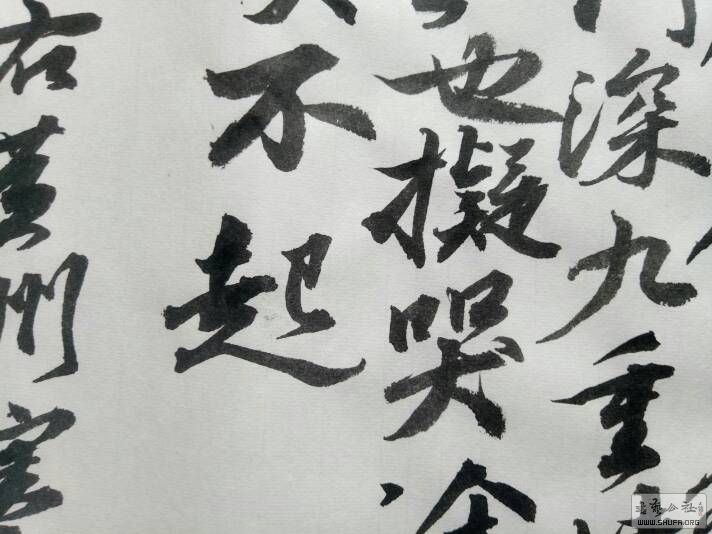 深九重
也擬哭
不起
右黄州寒
书艺公社
WWW.SHUFA.ORG